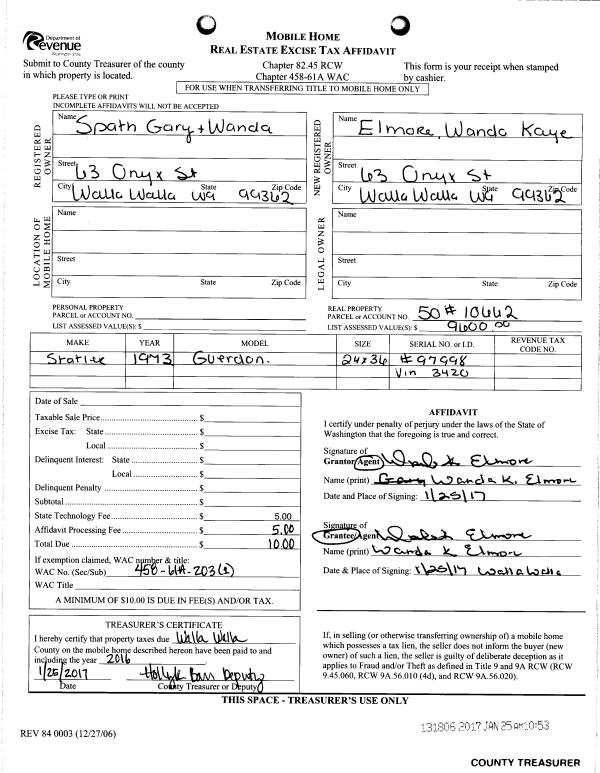 Department of
Revenue
Washington State
MOBILE HOME
REAL ESTATE EXCISE TAX AFFIDAVIT
Submit to County Treasurer of the county
in which property is located.
Chapter 82.45 RCW
Chapter 458-61A WAC
This form is your receipt when stamped
by cashier.
FOR USE WHEN TRANSFERRING TITLE TO MOBILE HOME ONLY
PLEASE TYPE OR PRINT
INCOMPLETE AFFIDAVITS WILL NOT BE ACCEPTED
REGISTERED OWNER
Name Spath Gary + Wanda
Street 63 Onyx St
City Walla Walla State WA Zip Code 99362
NEW REGISTERED OWNER
Name Elmore, Wanda Kaye
Street 63 Onyx St
City Walla Walla State WA Zip Code 99362
LOCATION OF MOBILE HOME
Name
Street
City State Zip Code
LEGAL OWNER
Name
Street
City State Zip Code
PERSONAL PROPERTY
PARCEL or ACCOUNT NO.
LIST ASSESSED VALUE(S): $
REAL PROPERTY
PARCEL or ACCOUNT NO. 50# 10662
LIST ASSESSED VALUE(S): $ 9600.00
MAKE YEAR MODEL SIZE SERIAL NO. or I.D. REVENUE TAX CODE NO.
1973 Guerdon. 24x36 #97998
Vin 3420
Date of Sale
Taxable Sale Price $
Excise Tax: State $
Local $
Delinquent Interest: State $
Local $
Delinquent Penalty $
Subtotal $
State Technology Fee $ 5.00
Affidavit Processing Fee $ 5.00
Total Due $ 10.00
If exemption claimed, WAC number & title:
WAC No. (Sec/Sub) 458-61A-203(1)
WAC Title
A MINIMUM OF $10.00 IS DUE IN FEE(S) AND/OR TAX.
AFFIDAVIT
I certify under penalty of perjury under the laws of the State of
Washington that the foregoing is true and correct.
Signature of
Grantor/Agent Wanda K Elmore
Name (print) Gary Wanda K. Elmore
Date and Place of Signing: 1/25/17
Signature of
Grantee/Agent Elmore
Name (print) Wanda K Elmore
Date & Place of Signing: 1/25/17 Walla Walla
TREASURER'S CERTIFICATE
I hereby certify that property taxes due Walla Walla
County on the mobile home described hereon have been paid to and
including the year 2016
1/25/2017 Deputy
Date County Treasurer or Deputy
If, in selling (or otherwise transferring ownership of) a mobile home
which possesses a tax lien, the seller does not inform the buyer (new
owner) of such a lien, the seller is guilty of deliberate deception as it
applies to Fraud and/or Theft as defined in Title 9 and 9A RCW (RCW
9.45.060, RCW 9A.56.010 (4d), and RCW 9A.56.020).
THIS SPACE - TREASURER'S USE ONLY
131806 2017 JAN 25 AM 10:53
REV 84 0003 (12/27/06)
COUNTY TREASURER